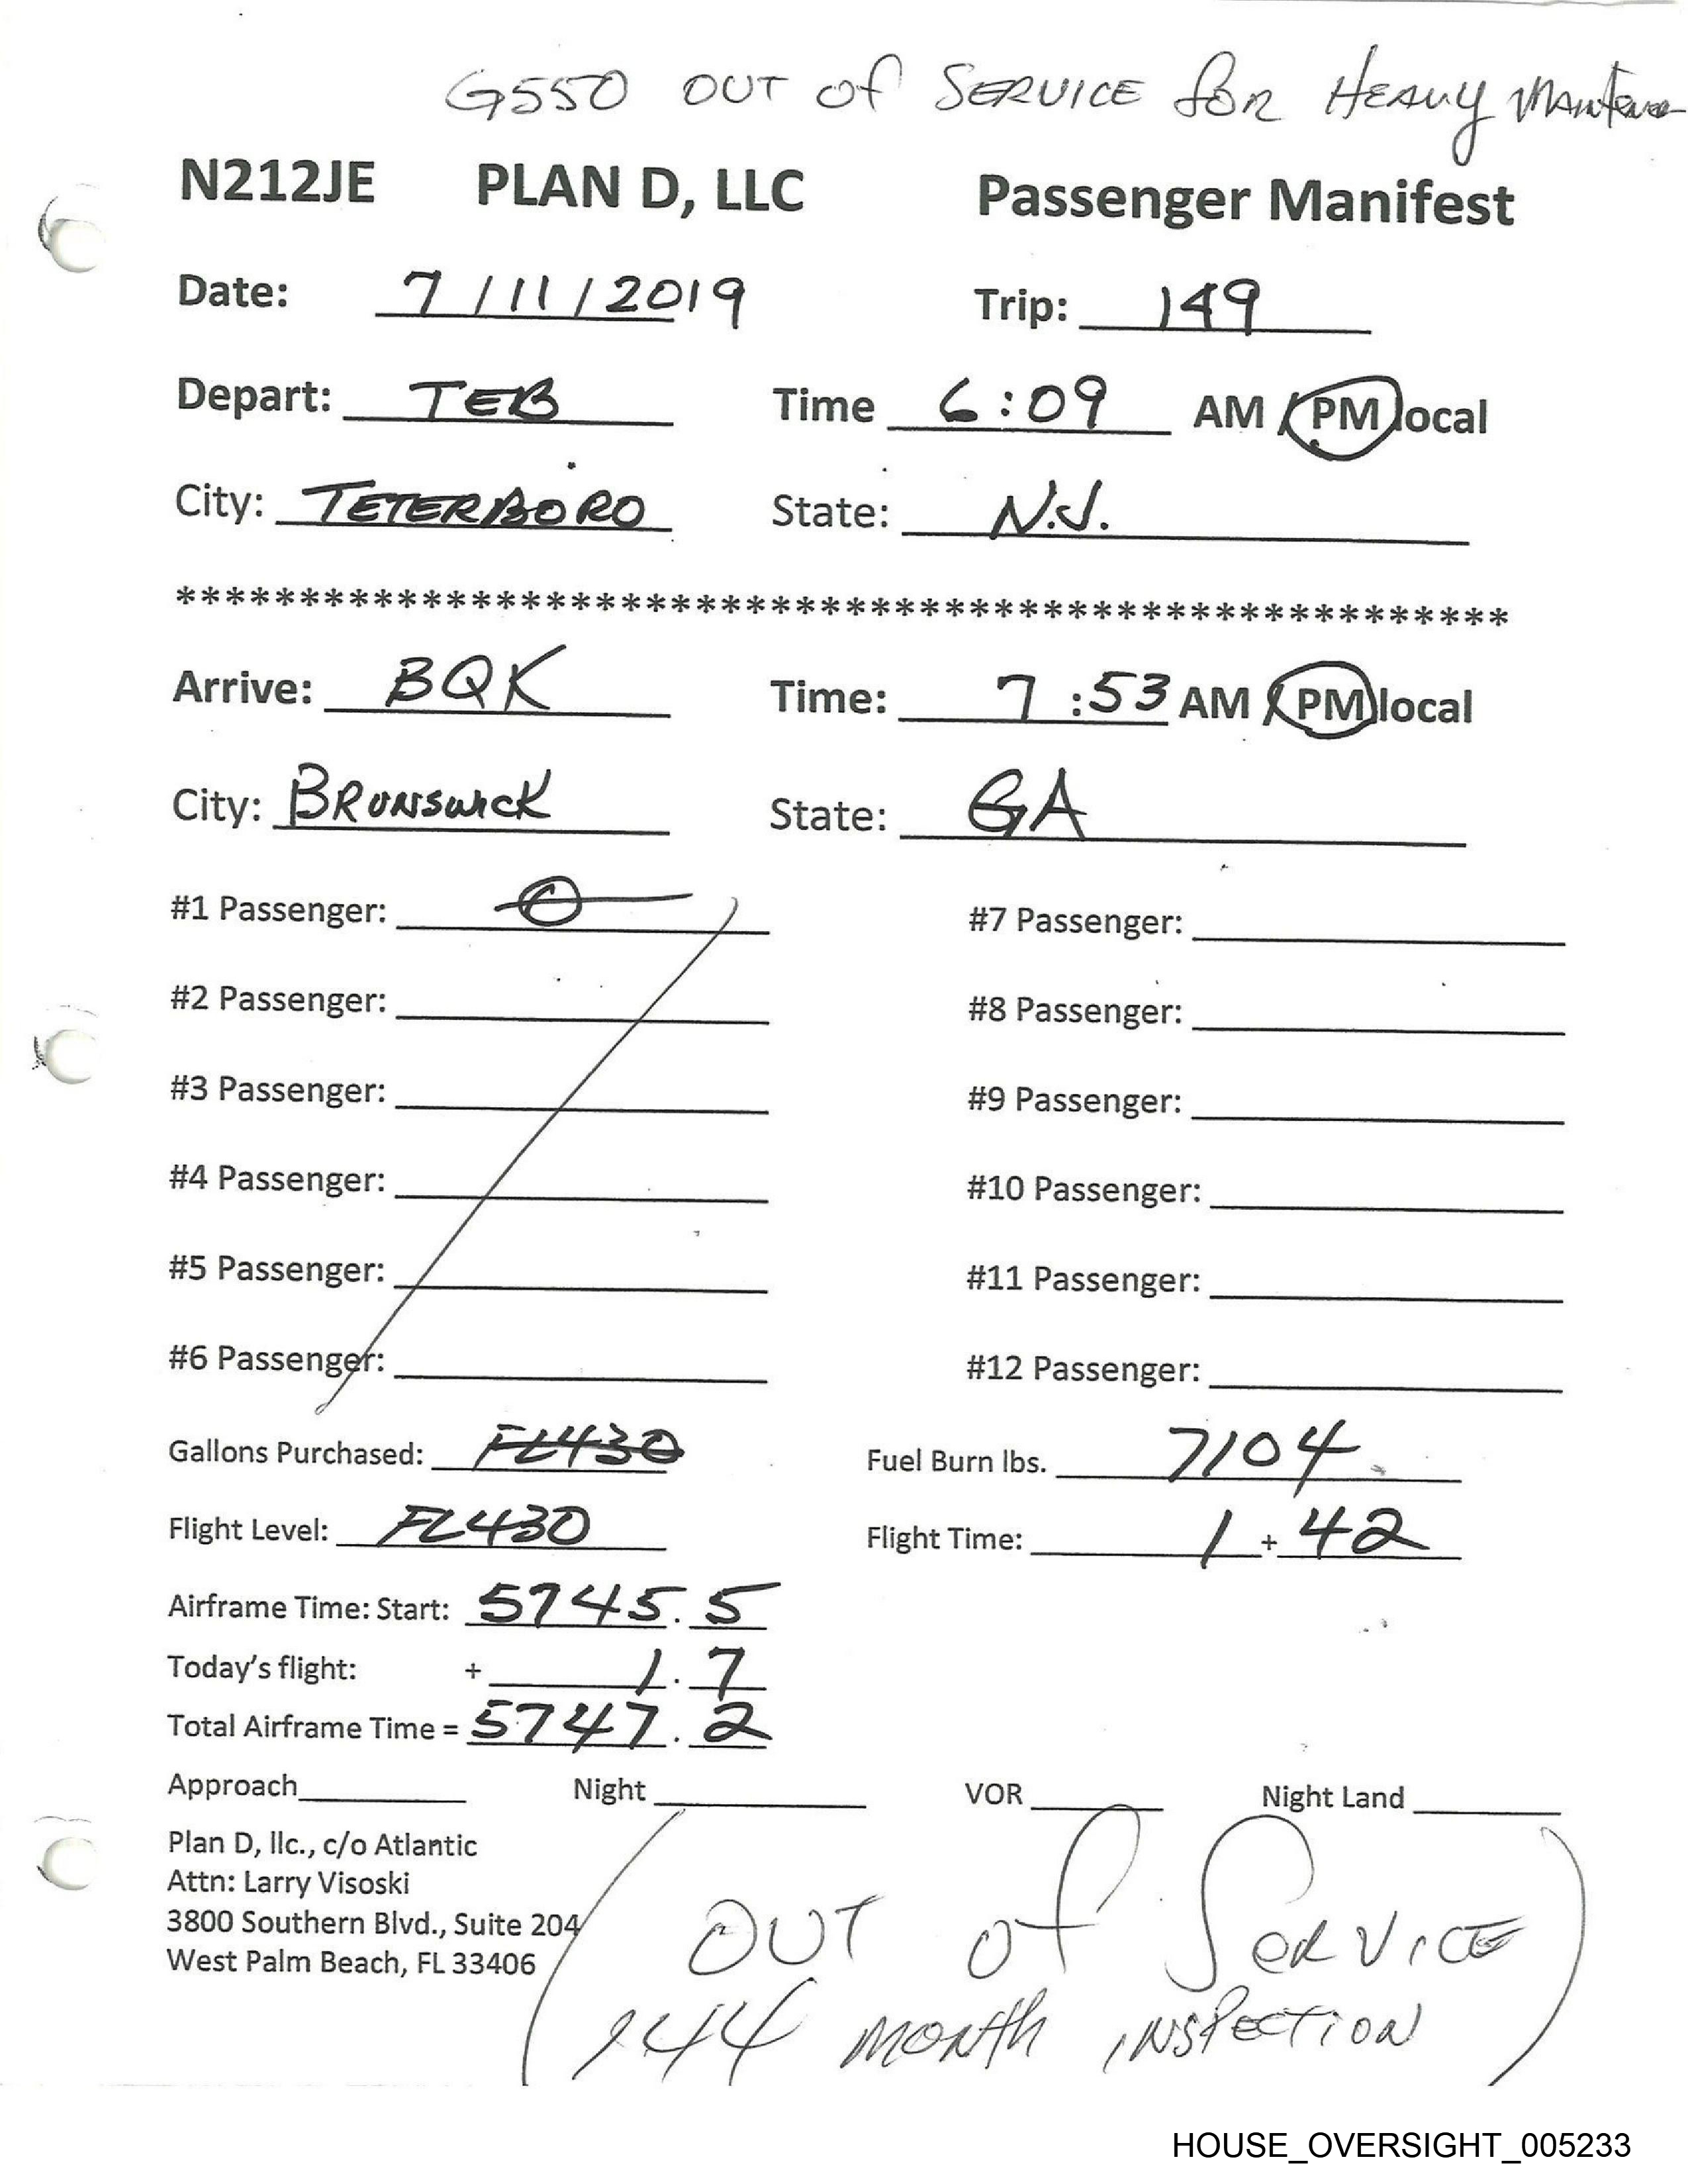 G550 OUT of SERVICE for HEAVY
N212JE PLAN D, LLC Passenger Manifest
Date: 7/11/2019 Trip: 149
Depart: TEB Time 6:09 AM / PM local
City: TETERBORO State: N.J.
******************************************************
Arrive: BQK Time: 7:53 AM / PM local
City: BRUNSWICK State: GA
#1 Passenger: 0 #7 Passenger:
#2 Passenger: #8 Passenger:
#3 Passenger: #9 Passenger:
#4 Passenger: #10 Passenger:
#5 Passenger: #11 Passenger:
#6 Passenger: #12 Passenger:
Gallons Purchased: FL430 Fuel Burn lbs. 7104
Flight Level: FL430 Flight Time: 1 + 42
Airframe Time: Start: 5745.5
Today's flight: + 1.7
Total Airframe Time = 5747.2
Approach Night VOR Night Land
Plan D, llc., c/o Atlantic
Attn: Larry Visoski
3800 Southern Blvd., Suite 204
West Palm Beach, FL 33406
(OUT of SERVICE)
144 MONTH INSPECTION
HOUSE_OVERSIGHT_005233